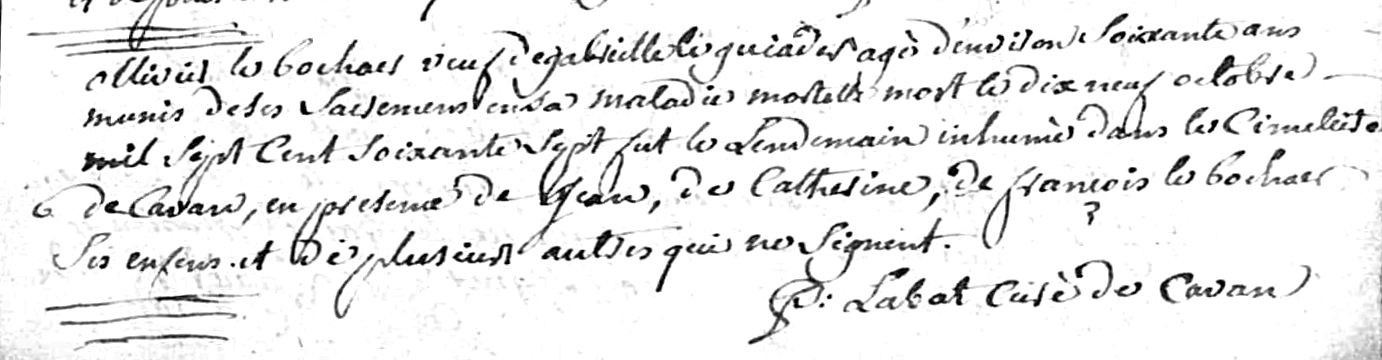 ollivier le bochaer veuf de gabrielle le guiader agé denviron Soixante ans
munis deses Sacremens en sa maladie mortelle mort le dix neuf octobre
mil Sept Cent Soixante Sept fut le Lendemain inhumé dans le Cimetiere
6 de Cavan, en presence de jean, de Catherine, de françois le bochaer
Ses enfens et de plusieur autres qui ne Signent.
P: Labat Curé de Cavan